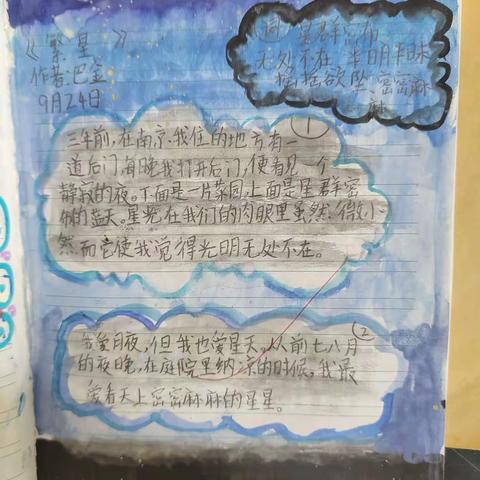 《繁星》
作者:巴金
9月24日
词 星群密布
无处不在、半明半昧
摇摇欲坠、密密麻
麻
①
三年前,在南京,我住的地方有一
道后门,每晚我打开后门,便看见一个
静寂的夜。下面是一片菜园,上面是星群密
布的蓝天。星光在我们的肉眼里虽然微小,
然而它使我觉得光明无处不在。
②
我爱月夜,但我也爱星天,从前七八月
的夜晚,在庭院里纳凉的时候,我最
爱看天上密密麻麻的星星。